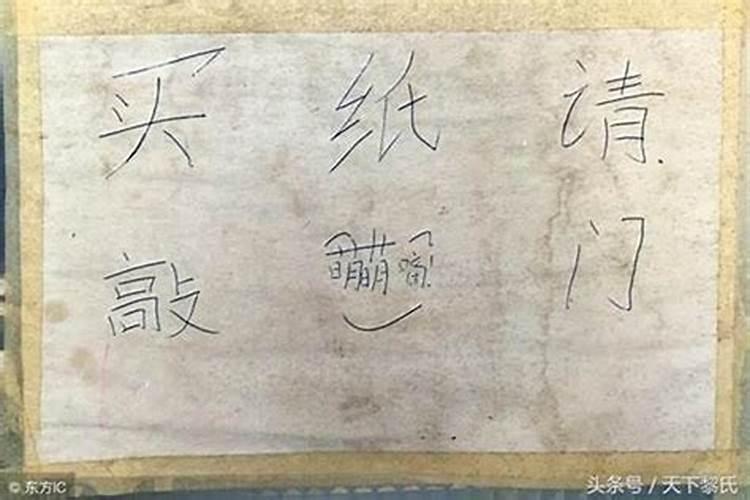 买 纸 请
敲 萌萌 门
© 东方IC
头条号 / 天下黎氏